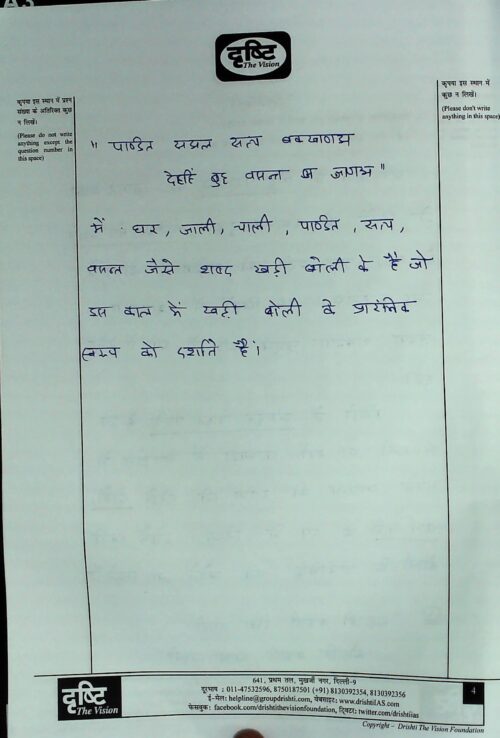 दृष्टि
The Vision
कृपया इस स्थान में प्रश्न
संख्या के अतिरिक्त कुछ
न लिखें।
(Please do not write
anything except the
question number in
this space)
कृपया इस स्थान में
कुछ न लिखें।
(Please don't write
anything in this space)
" पण्डित सअल सत्य बक्खाणअ
देहहि बुद्ध बसन्त ण जाणअ "
में घर, जाली, चाली, पण्डित, सत्य,
बसन्त जैसे शब्द खड़ी बोली के हैं जो
इस काल में खड़ी बोली के प्रारंभिक
स्वरूप को दर्शाते हैं।
641, प्रथम तल, मुखर्जी नगर, दिल्ली-9
दूरभाष : 011-47532596, 8750187501 (+91) 8130392354, 8130392356
ई-मेल: helpline@groupdrishti.com, वेबसाइट: www.drishtiIAS.com
फेसबुक: facebook.com/drishtithevisionfoundation, ट्विटर: twitter.com/drishtiias
दृष्टि
The Vision
4
Copyright – Drishti The Vision Foundation